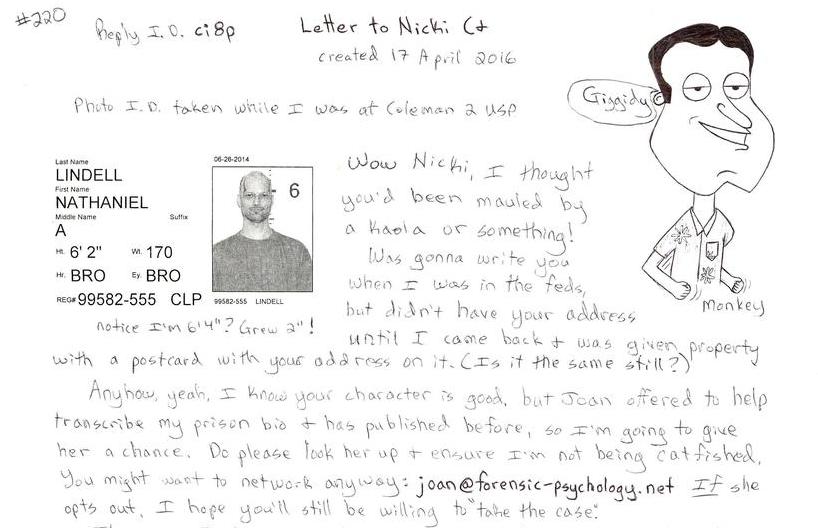 #220
Reply I.D. ci8p
Letter to Nicki Ct
created 17 April 2016
Giggidy
Photo I.D. taken while I was at Coleman 2 USP
Last Name
LINDELL
First Name
NATHANIEL
Middle Name Suffix
A
Ht. 6' 2" Wt. 170
Hr. BRO Ey. BRO
REG# 99582-555 CLP
06-26-2014
6
99582-555 LINDELL
notice I'm 6'4"? Grew 2"!
Wow Nicki, I thought
you'd been mauled by
a kaola or something!
Was gonna write you
when I was in the feds,
but didn't have your address
Monkey
until I came back + was given property
with a postcard with your address on it. (Is it the same still?)
Anyhow, yeah, I know your character is good, but Joan offered to help
transcribe my prison bio + has published before, so I'm going to give
her a chance. Do please look her up + ensure I'm not being catfished.
You might want to network anyway: joan@forensic-psychology.net If she
opts out, I hope you'll still be willing to "take the case".